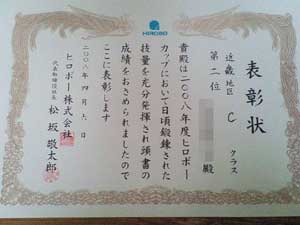 HIROBO
表彰状
近畿地区 Cクラス
第二位
殿
貴殿は二〇〇八年度ヒロボー
カップにおいて日頃鍛錬された
技量を充分発揮され頭書の
成績をおさめられましたので
ここに表彰します
二〇〇八年四月六日
ヒロボー株式会社
代表取締役社長 松坂敬太郎